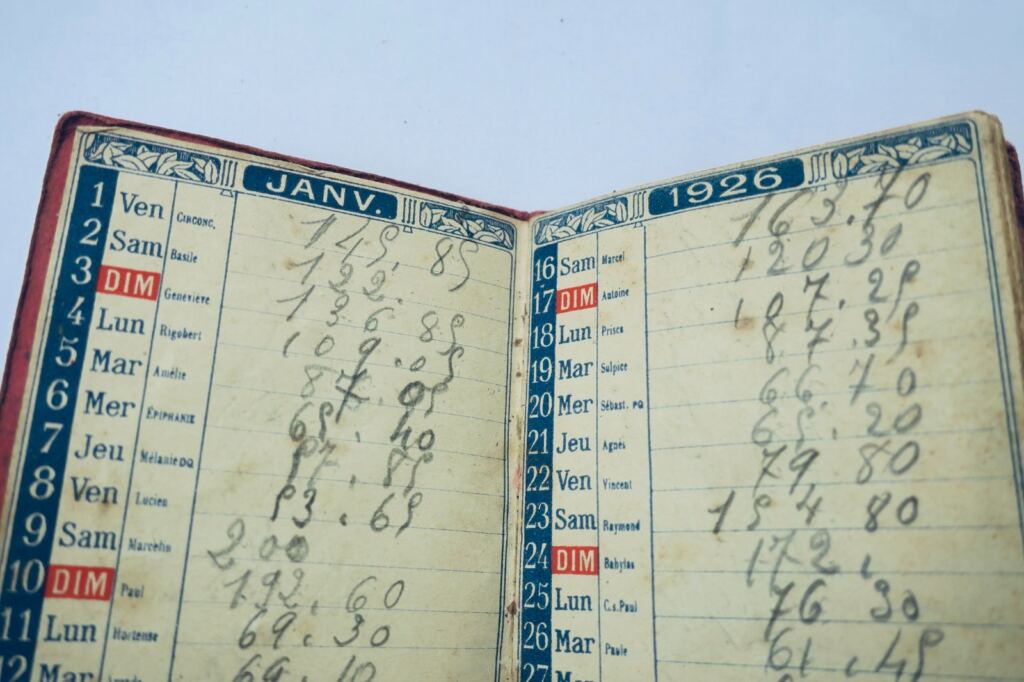 JANV.
1 Ven CIRCONC. 145.85
2 Sam Basile 122.
3 DIM Geneviève 136.85
4 Lun Rigobert 109.05
5 Mar Amélie 87.05
6 Mer ÉPIPHANIE 65.40
7 Jeu Mélanie DQ 57.85
8 Ven Lucien 53.65
9 Sam Marcelin 200
10 DIM Paul 192.60
11 Lun Hortense 69.30
12 Mar 69.10
1926
163.70
16 Sam Marcel 120 30
17 DIM Antoine 107.25
18 Lun Prisca 87.35
19 Mar Sulpice 66.70
20 Mer Sébast. PQ 65.20
21 Jeu Agnès 79 80
22 Ven Vincent 154 80
23 Sam Raymond 172.
24 DIM Babylas 76.30
25 Lun C.s.Paul 61.45
26 Mar Paule
27 Mer